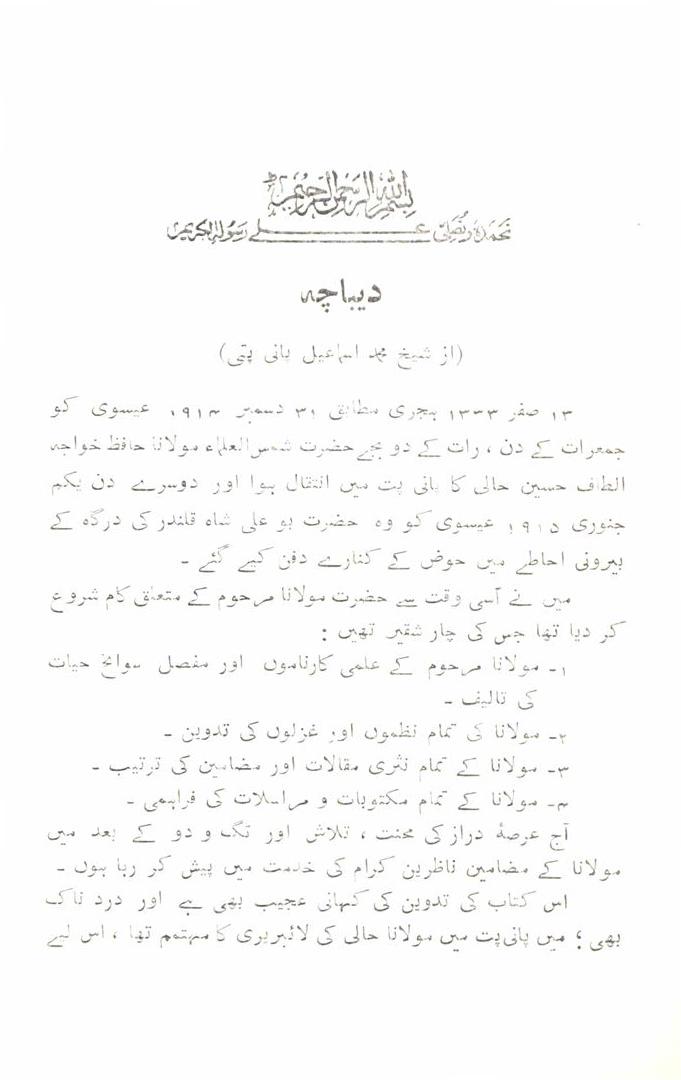 بسم اللہ الرحمن الرحیم
نحمدہ و نصلی علے رسولہ الکریم
دیباچہ
(از شیخ محمد اسماعیل پانی پتی)
۱۳ صفر ۱۳۳۳ ہجری مطابق ۳۱ دسمبر ۱۹۱۴ عیسوی کو
جمعرات کے دن ، رات کے دو بجے حضرت شمس العلماء مولانا حافظ خواجہ
الطاف حسین حالی کا پانی پت میں انتقال ہوا اور دوسرے دن یکم
جنوری ۱۹۱۵ عیسوی کو وہ حضرت بو علی شاہ قلندر کی درگاہ کے
بیرونی احاطے میں حوض کے کنارے دفن کیے گئے ۔
میں نے اسی وقت سے حضرت مولانا مرحوم کے متعلق کام شروع
کر دیا تھا جس کی چار شقیں تھیں :
۱۔ مولانا مرحوم کے علمی کارناموں اور مفصل سوانح حیات
کی تالیف ۔
۲۔ مولانا کی تمام نظموں اور غزلوں کی تدوین ۔
۳۔ مولانا کے تمام نثری مقالات اور مضامین کی ترتیب ۔
۴۔ مولانا کے تمام مکتوبات و مراسلات کی فراہمی ۔
آج عرصۂ دراز کی محنت ، تلاش اور تگ و دو کے بعد میں
مولانا کے مضامین ناظرین کرام کی خدمت میں پیش کر رہا ہوں ۔
اس کتاب کی تدوین کی کہانی عجیب بھی ہے اور درد ناک
بھی ؛ میں پانی پت میں مولانا حالی کی لائبریری کا مہتمم تھا ، اس لیے